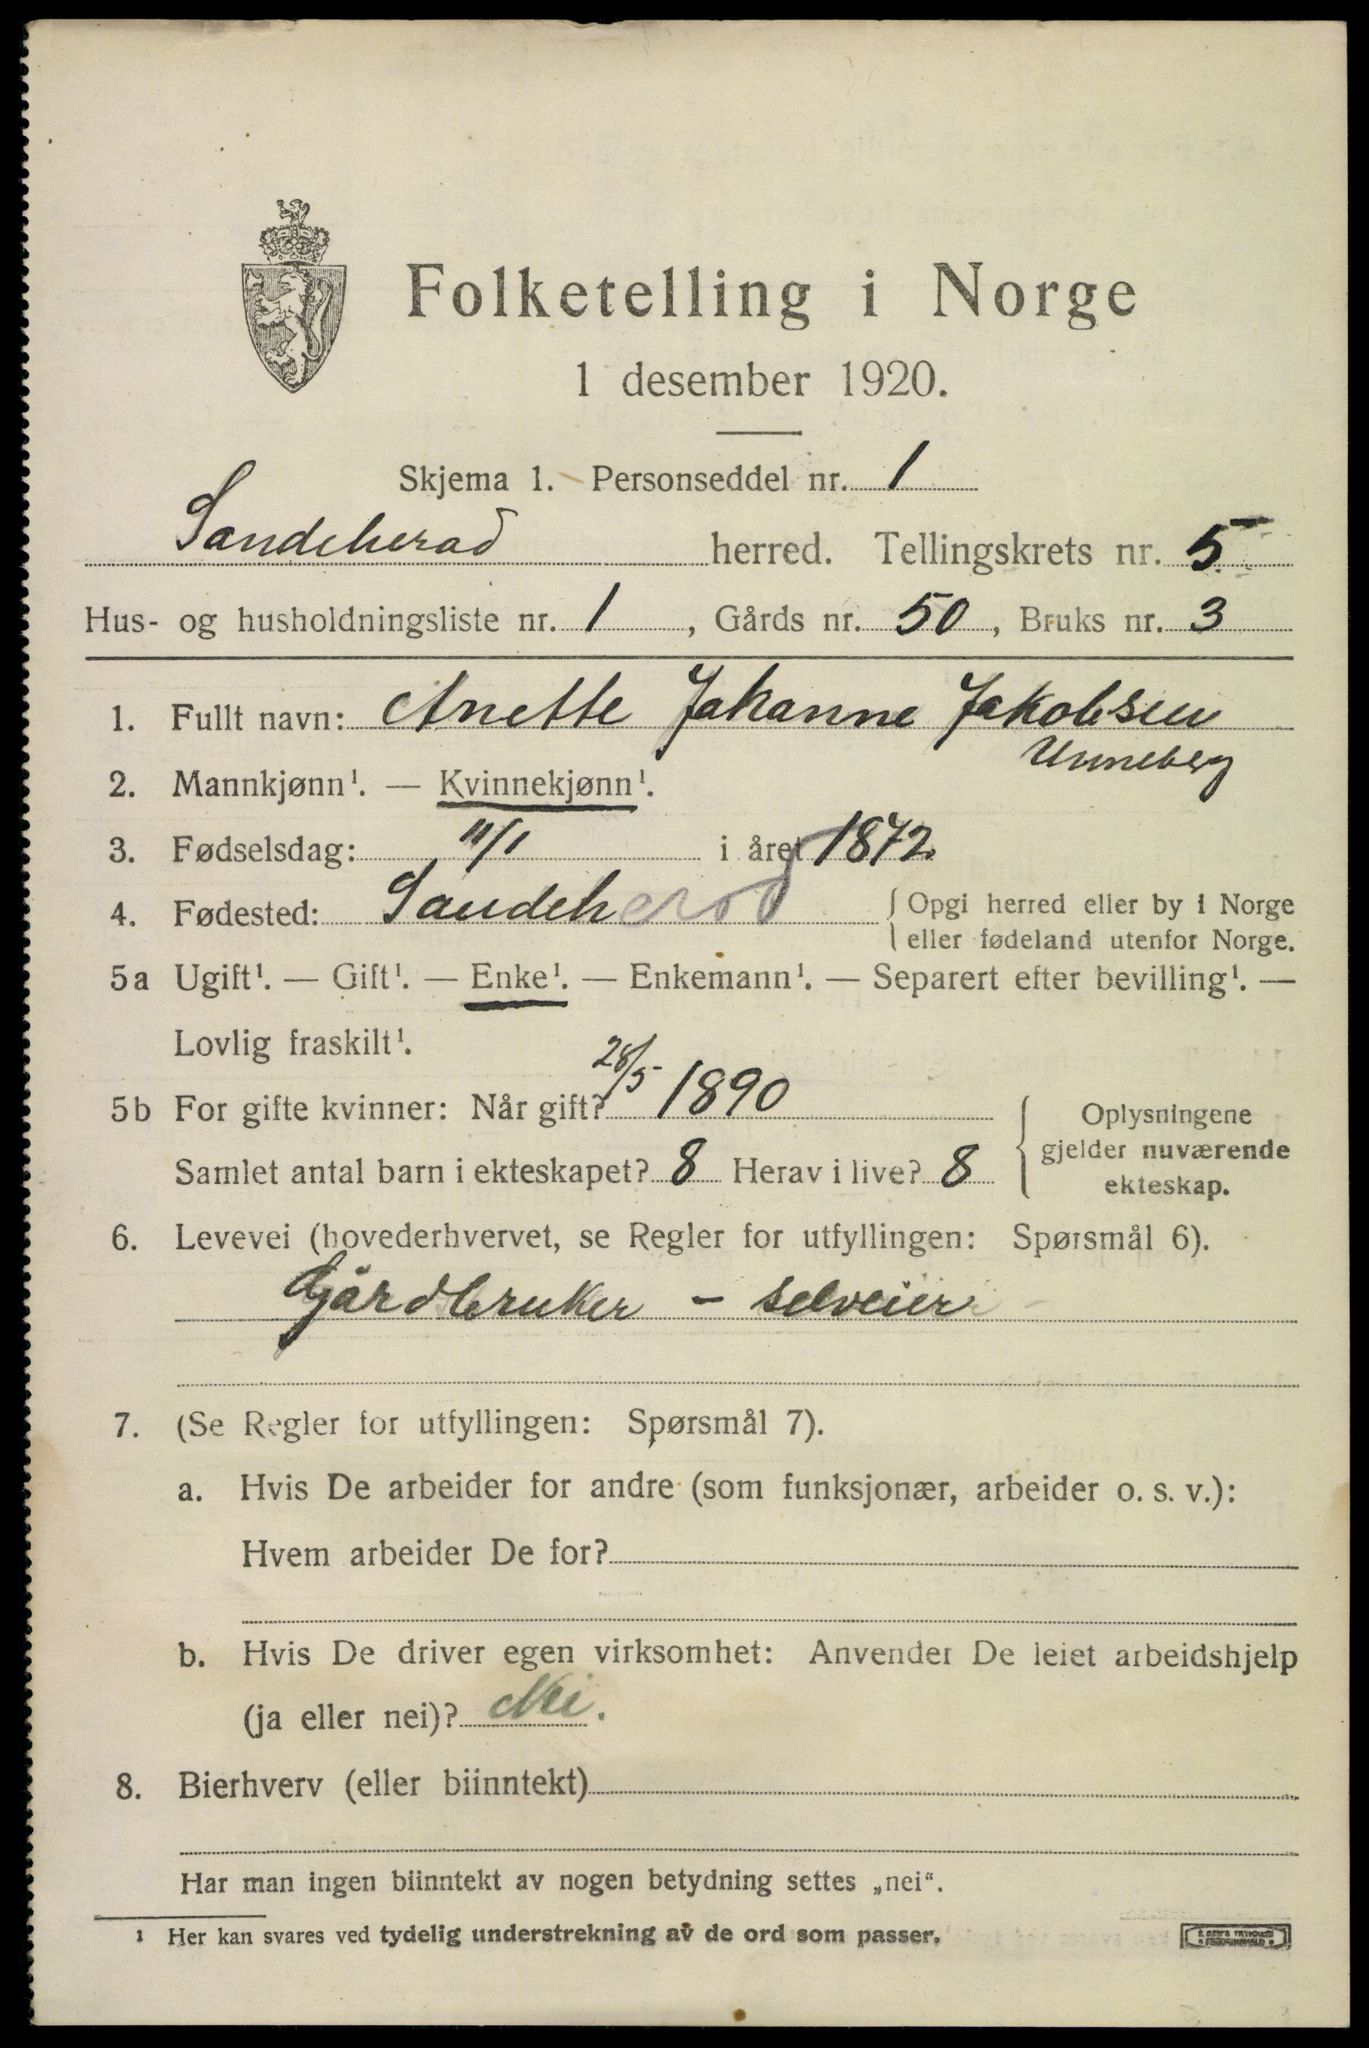 Folketelling i Norge
1 desember 1920.
Skjema 1. Personseddel nr. 1
Sandeherad herred. Tellingskrets nr. 5
Hus- og husholdningsliste nr. 1, Gårds nr. 50, Bruks nr. 3
1. Fullt navn: Anette Johanne Jakobsen
Unneberg
2. Mannkjønn¹. — Kvinnekjønn¹.
3. Fødselsdag: 11/1 i året 1872.
4. Fødested: Sandeherad { Opgi herred eller by i Norge
eller fødeland utenfor Norge.
5a Ugift¹. — Gift¹. — Enke¹. — Enkemann¹. — Separert efter bevilling¹. —
Lovlig fraskilt¹.
5b For gifte kvinner: Når gift? 28/5 1890
Samlet antal barn i ekteskapet? 8 Herav i live? 8
{ Oplysningene
gjelder nuværende
ekteskap.
6. Levevei (hovederhvervet, se Regler for utfyllingen: Spørsmål 6).
Gårdbruker - selveier
7. (Se Regler for utfyllingen: Spørsmål 7).
a. Hvis De arbeider for andre (som funksjonær, arbeider o. s. v.):
Hvem arbeider De for?
b. Hvis De driver egen virksomhet: Anvender De leiet arbeidshjelp
(ja eller nei)? Nei.
8. Bierhverv (eller biinntekt)
Har man ingen biinntekt av nogen betydning settes „nei“.
¹ Her kan svares ved tydelig understrekning av de ord som passer.